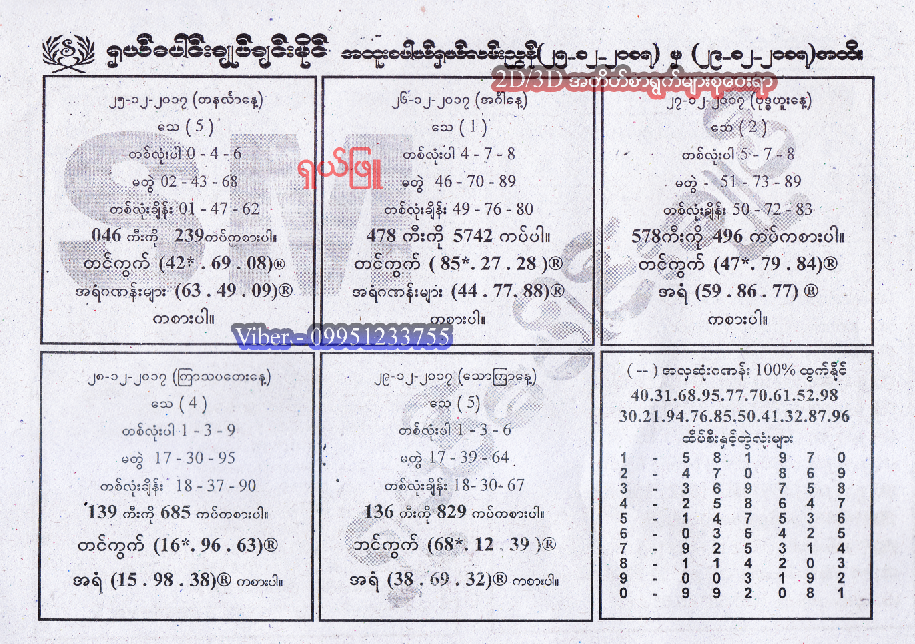 ရှယ်ခပေါင်းချုပ်ချင်းမိုင် အထူးစပေါ့ယ်ရှယ်လမ်းညွှန်(၂၅-၁၂-၂၀၁၇) မှ (၂၉-၁၂-၂၀၁၇)အထိ
2D/3D အတိတ်စာရွက်များစုဝေးရာ
၂၅-၁၂-၂၀၁၇ (တနင်္လာနေ့)
သေ ( 5 )
တစ်လုံးပါ 0 - 4 - 6
မတွဲ 02 - 43 - 68
တစ်လုံးချိန်း 01 - 47 - 62
046 ကီးကို 239ကပ်ကစားပါ။
တင်ကွက် (42*. 69 . 08)®
အရံဂဏန်းများ (63 . 49 . 09)®
ကစားပါ။
၂၆-၁၂-၂၀၁၇ (အင်္ဂါနေ့)
သေ ( 1 )
တစ်လုံးပါ 4 - 7 - 8
မတွဲ 46 - 70 - 89
တစ်လုံးချိန်း 49 - 76 - 80
478 ကီးကို 5742 ကပ်ပါ။
တင်ကွက် ( 85*. 27 . 28 )®
အရံဂဏန်းများ (44 . 77. 88)®
ကစားပါ။
၂၇-၁၂-၂၀၁၇ (ဗုဒ္ဓဟူးနေ့)
သေ ( 2 )
တစ်လုံးပါ 5 - 7 - 8
မတွဲ - 51 - 73 - 89
တစ်လုံးချိန်း 50 - 72 - 83
578ကီးကို 496 ကပ်ကစားပါ။
တင်ကွက် (47*. 79 . 84)®
အရံ (59 . 86 . 77) ®
ကစားပါ။
SM
ရှယ်ဖြူ
Viber - 09951233755
၂၈-၁၂-၂၀၁၇ (ကြာသပတေးနေ့)
သေ ( 4 )
တစ်လုံးပါ 1 - 3 - 9
မတွဲ 17 - 30 - 95
တစ်လုံးချိန်း 18 - 37 - 90
139 ကီးကို 685 ကပ်ကစားပါ။
တင်ကွက် (16*. 96 . 63)®
အရံ (15 . 98 . 38)® ကစားပါ။
၂၉-၁၂-၂၀၁၇ (သောကြာနေ့)
သေ ( 5)
တစ်လုံးပါ 1 - 3 - 6
မတွဲ 17 - 39 - 64
တစ်လုံးချိန်း 18- 30- 67
136 ကီးကို 829 ကပ်ကစားပါ။
ဘင်ကွက် (68*. 12 . 39 )®
အရံ (38 . 69 . 32)® ကစားပါ။
( -- ) အလှဆုံးဂဏန်း 100% ထွက်နိုင်
40.31.68.95.77.70.61.52.98
30.21.94.76.85.50.41.32.87.96
ထိပ်စီးနှင့်တွဲလုံးများ
1 - 5 8 1 9 7 0
2 - 4 7 0 8 6 9
3 - 3 6 9 7 5 8
4 - 2 5 8 6 4 7
5 - 1 4 7 5 3 6
6 - 0 3 6 4 2 5
7 - 9 2 5 3 1 4
8 - 1 1 4 2 0 3
9 - 0 0 3 1 9 2
0 - 9 9 2 0 8 1